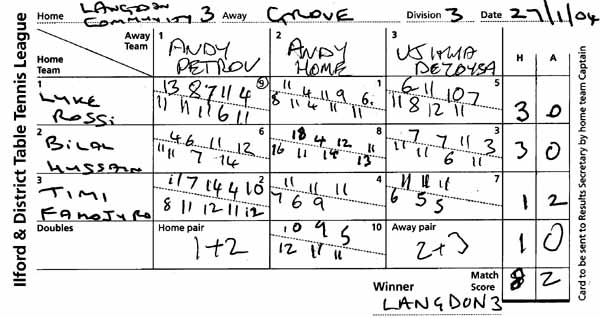 Ilford & District Table Tennis League
Home LANGDON COMMUNITY 3 Away GROVE Division 3 Date 27/1/04
Away Team
Home Team
1 ANDY PETROV
2 ANDY HOME
3
H A
1 LUKE ROSSI
9
13 8 7 11 4
11 11 11 6 11
1
11 4 11 9 6
8 11 4 11 11
5
6 11 10 7
11 8 12 11
3 0
2 BILAL HUSSAIN
6
4 6 11 12
11 11 7 14
8
18 4 12 11
16 11 14 13
3
7 7 11 3
11 11 6 11
3 0
3 TIMI
2
11 7 14 4 10
8 11 12 11 12
4
11 11 11
7 6 9
7
11 11 11
6 5 5
1 2
Doubles
Home pair
1+2
10
10 9 5
12 11 11
Away pair
2+3
1 0
Match Score 8 2
Winner
LANGDON 3
Card to be sent to Results Secretary by home team Captain